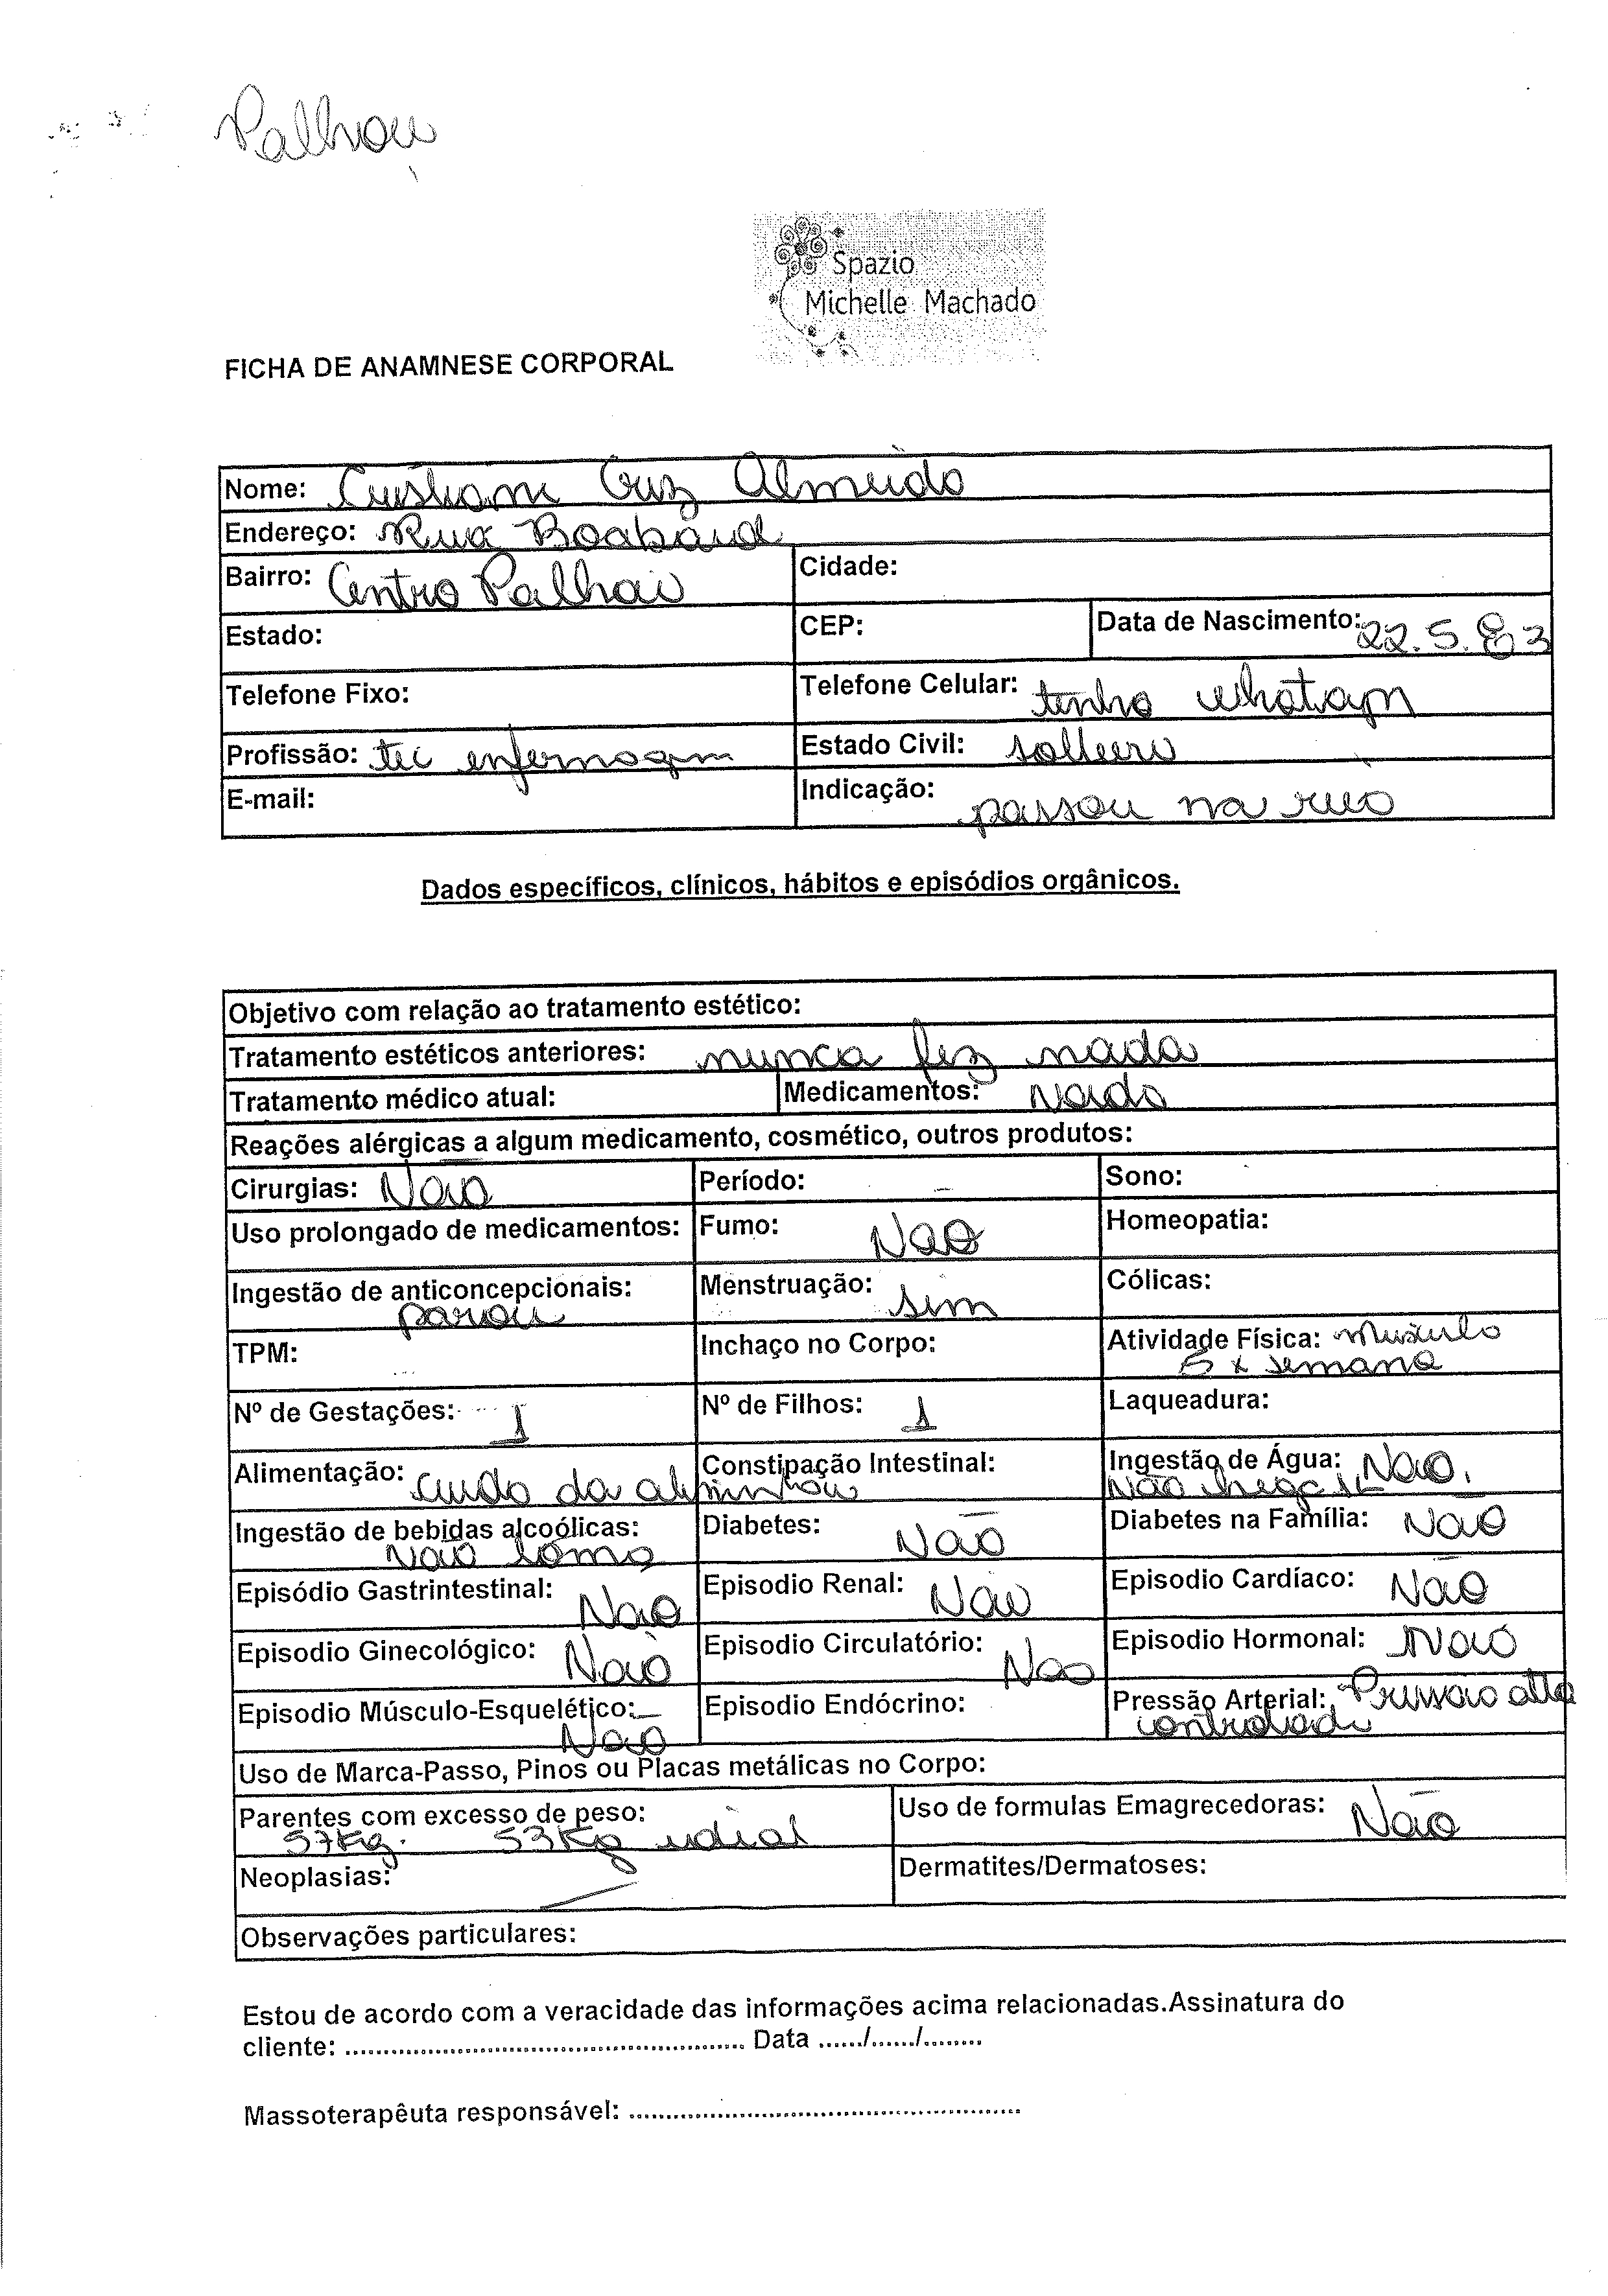 Palhou
Spazio
Michelle Machado
FICHA DE ANAMNESE CORPORAL
Nome: Cristiani Cruz Almeida
Endereço: Rua
Bairro: Centro Palhou Cidade:
Estado: CEP: Data de Nascimento: 22.5.83
Telefone Fixo: Telefone Celular: tenho whatapp
Profissão: tec enfermagem Estado Civil: solteiro
E-mail: Indicação: passou na rua
Dados específicos, clínicos, hábitos e episódios orgânicos.
Objetivo com relação ao tratamento estético:
Tratamento estéticos anteriores: nunca fez nada
Tratamento médico atual: Medicamentos: Nada
Reações alérgicas a algum medicamento, cosmético, outros produtos:
Cirurgias: Não Período: – Sono:
Uso prolongado de medicamentos: Fumo: Não Homeopatia:
Ingestão de anticoncepcionais: Menstruação: Cólicas:
parou sim
TPM: Inchaço no Corpo: Atividade Física: Musculo
5x semana
Nº de Gestações: 1 Nº de Filhos: 1 Laqueadura:
Alimentação: cuida da Constipação Intestinal: Ingestão de Água: Não.
Não chega 1L
Ingestão de bebidas alcoólicas: Diabetes: Não Diabetes na Família: Não
Não toma
Episódio Gastrintestinal: Não Episodio Renal: Não Episodio Cardíaco: Não
Episodio Ginecológico: Não Episodio Circulatório: Não Episodio Hormonal: Não
Episodio Músculo-Esquelético: Episodio Endócrino: Pressão Arterial: Pressão alta
Não controlada
Uso de Marca-Passo, Pinos ou Placas metálicas no Corpo:
Parentes com excesso de peso: Uso de formulas Emagrecedoras: Não
57Kg. 53Kg ideial
Neoplasias: Dermatites/Dermatoses:
Observações particulares:
Estou de acordo com a veracidade das informações acima relacionadas.Assinatura do
cliente: .................................................... Data ....../....../........
Massoterapêuta responsável: ....................................................